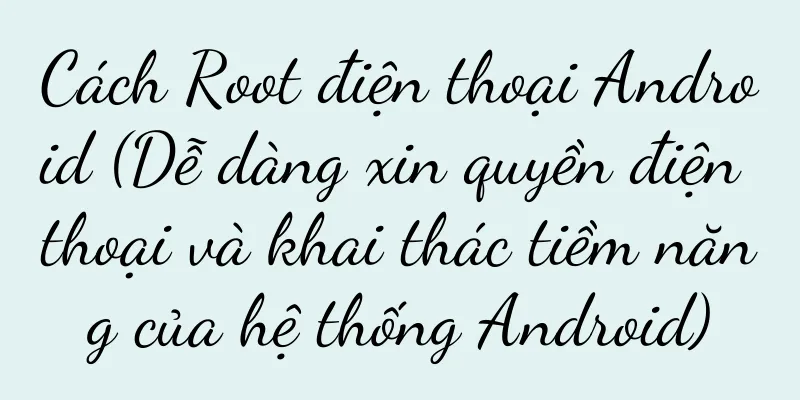 Cách Root điện thoại Andro
id (Dễ dàng xin quyền điện
thoại và khai thác tiềm năn
g của hệ thống Android)